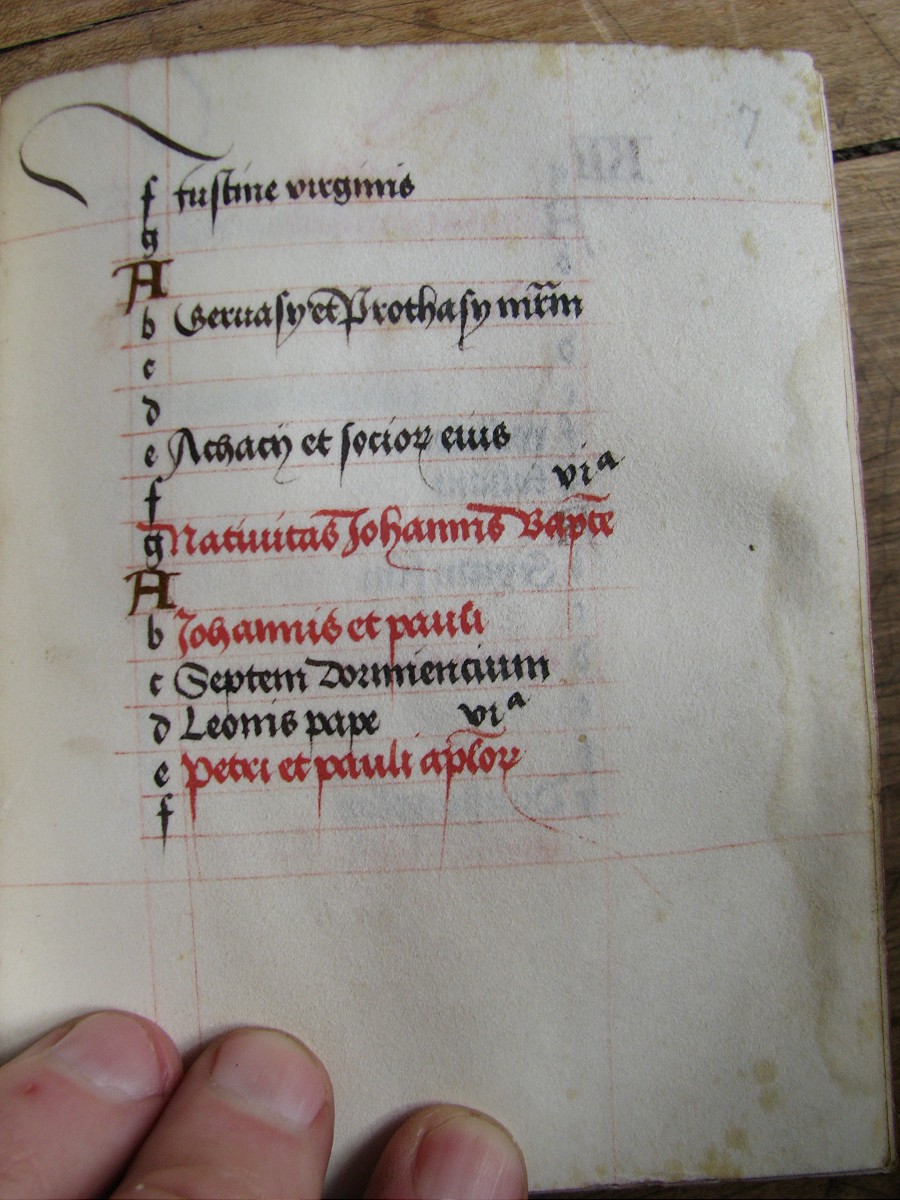 7
f Iustine virginis
g
A
b Geruasy et Prothasy mr̄m
c
d
e Achacij et socioꝝ eius
f vi a
g Natiuitas Johannis Bapt̄e
A
b Johannis et pauli
c Septem dormiencium
d Leonis pape vi a
e Petri et pauli apl̄oꝝ
f